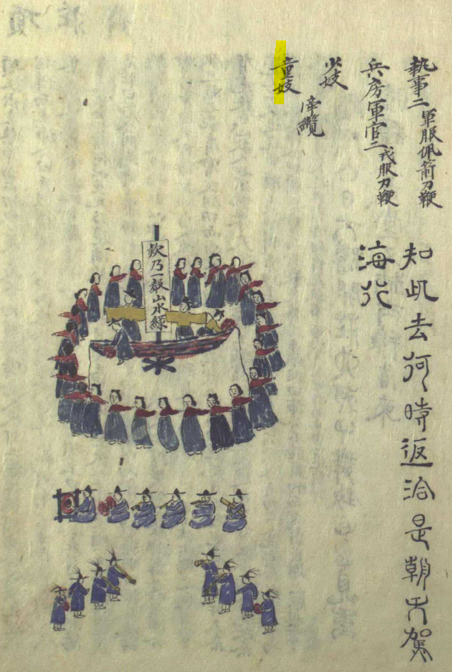 執事二 軍服佩箭刀鞭
兵房軍官二 戎服刀鞭
少妓
童妓 牽纜
知此去何時返洽是朝天駕
海行
欸乃一聲山水綠